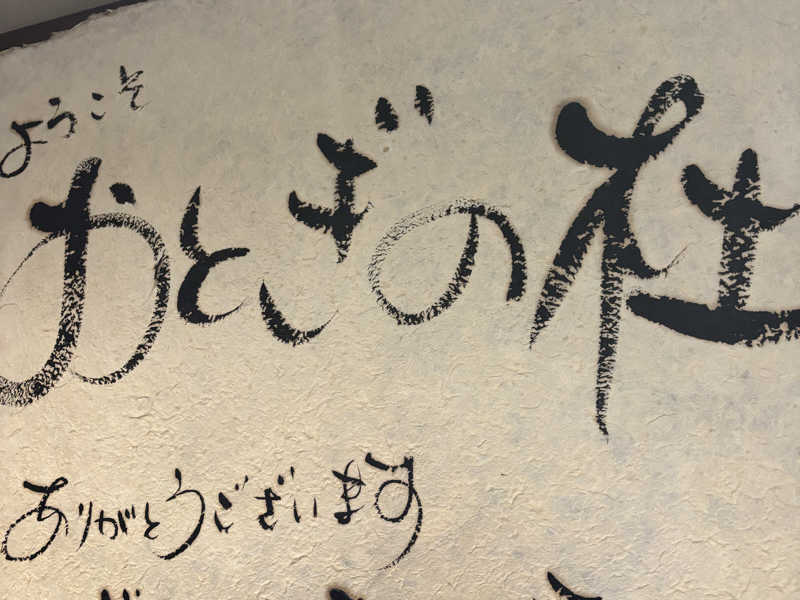 ようこそ
おとぎの杜
ありがとうございます